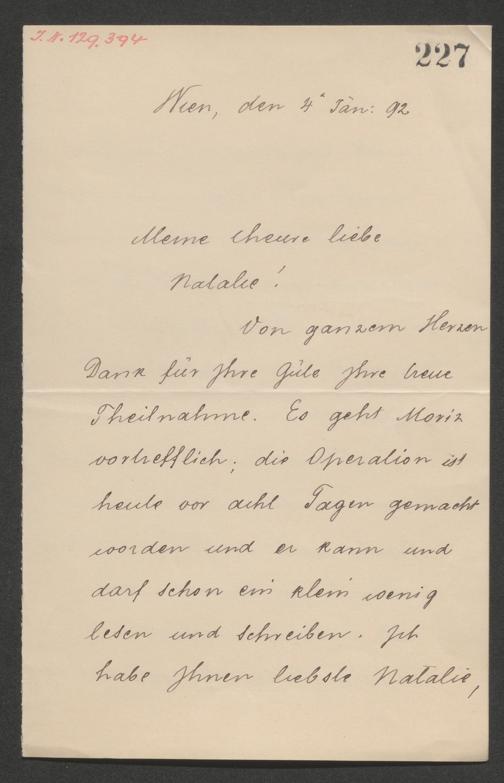 I.N. 129.394
227
Wien, den 4ª Jän: 92
Meine theure liebe
Natalie!
Von ganzem Herzen
Dank für Ihre Güte Ihre treue
Theilnahme. Es geht Moriz
vortrefflich; die Operation ist
heute vor acht Tagen gemacht
worden und er kann und
darf schon ein klein wenig
lesen und schreiben. Ich
habe Ihnen liebste Natalie,